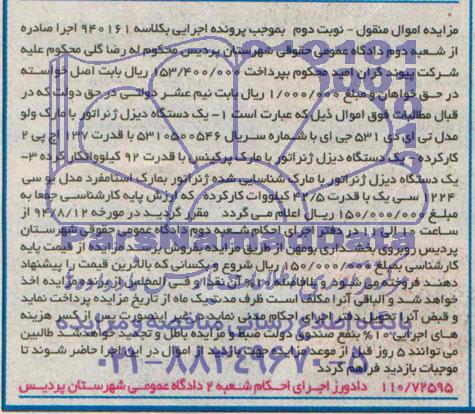 مزایده اموال منقول - نوبت دوم بموجب پرونده اجرایی بکلاسه ۹۴۰۱۶۱ اجرا صادره
از شعبه دوم دادگاه عمومی حقوقی شهرستان پردیس محکوم له رضا گلی محکوم علیه
شرکت پیوند گران امید محکوم بپرداخت ۱۵۳/۴۰۰/۰۰۰ ریال بابت اصل خواسته
در حق خواهان و مبلغ ۱/۰۰۰/۰۰۰ ریال بابت نیم عشر دولتی در حق دولت که در
قبال مطالبات فوق اموال ذیل که عبارت است ۱- یک دستگاه دیزل ژنراتور با مارک ولو
مدل تی ای دی ۵۳۱ جی ای با شماره سریال ۵۳۱۰۵۰۰۵۴۶ با قدرت ۱۳۷ اچ پی ۲
کارکرده - یک دستگاه دیزل ژنراتور با مارک پرکینس با قدرت ۹۲ کیلووات کارکرده ۳-
یک دستگاه دیزل ژنراتور با مارک شناسایی شده ژنراتور بمارک استامفرد مدل یو سی
۱۲۲۴ سی یک با قدرت ۴۲/۵ کیلووات کارکرده که ارزش پایه کارشناسی جمعا به
مبلغ ۱۵۰/۰۰۰/۰۰۰ ریال اعلام می گردد مقرر گردید در مورخه ۹۴/۸/۱۲ از
ساعت ۱۰ الی ۱۱ در دفتر اجرای احکام شعبه دوم دادگاه عمومی حقوقی شهرستان
پردیس روبروی بخشداری بومهن از طریق مزایده بفروش برسد مزایده از قیمت پایه
کارشناسی بمبلغ ۱۵۰/۰۰۰/۰۰۰ ریال شروع و بکسانی که بالاترین قیمت را پیشنهاد
دهند فروخته می شود و بلافاصله ۱۰% آن نقدا و فی المجلس از برنده مزایده اخذ
خواهد شد و الباقی آنرا مکلف است ظرف مدت یک ماه از تاریخ مزایده پرداخت نماید
و قبض آنرا تحویل دفتر اجرای احکام مدنی نماید، در غیر اینصورت پس از کسر هزینه
های اجرایی ۱۰% بنفع صندوق دولت ضبط و مزایده باطل و تجدید خواهد شد طالبین
می توانند ۵ روز قبل از موعد مزایده جهت بازدید از اموال در این اجرا حاضر شوند تا
موجبات بازدید فراهم گردد
۱۱۰/۷۲۵۹۵ دادورز اجرای احکام شعبه ۲ دادگاه عمومی شهرستان پردیس
پایگاه اطلاع رسانی مناقصه و مزایده
۰۲۱-۸۸۳۴۹۶۷۰-۵